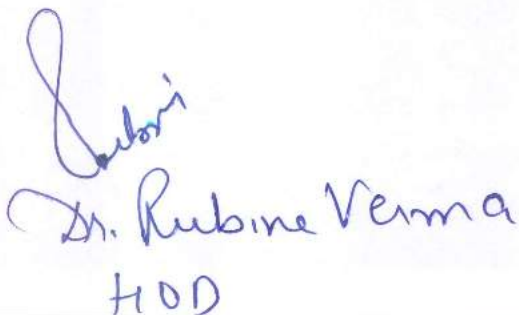 Dr. Rubine Verma
HOD